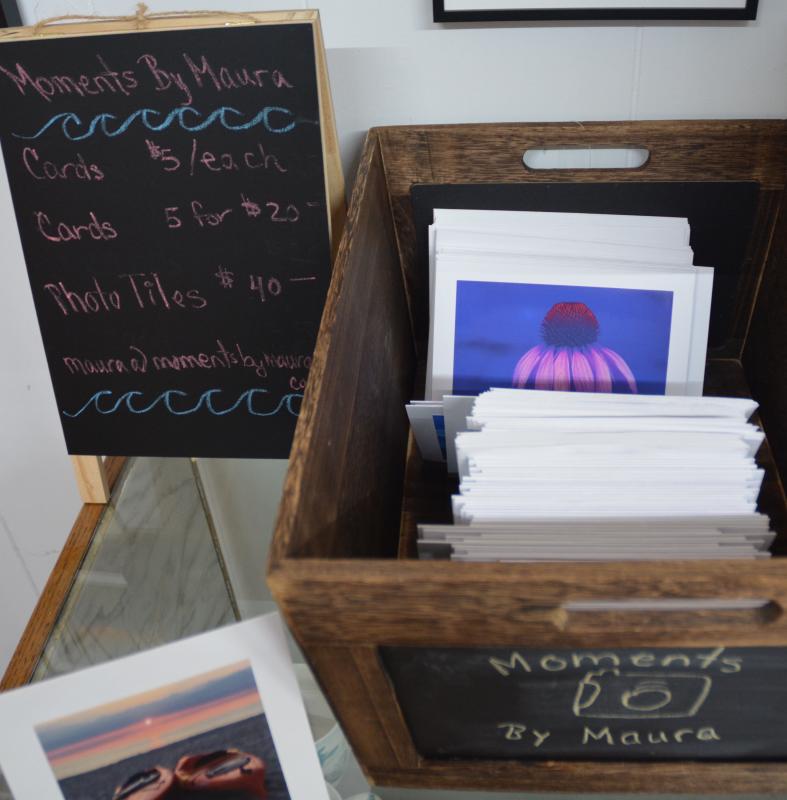 Moments By Maura
Cards $5/each
Cards 5 for $20-
Photo Tiles $40-
maura@momentsbymaura
co
Moments
By Maura